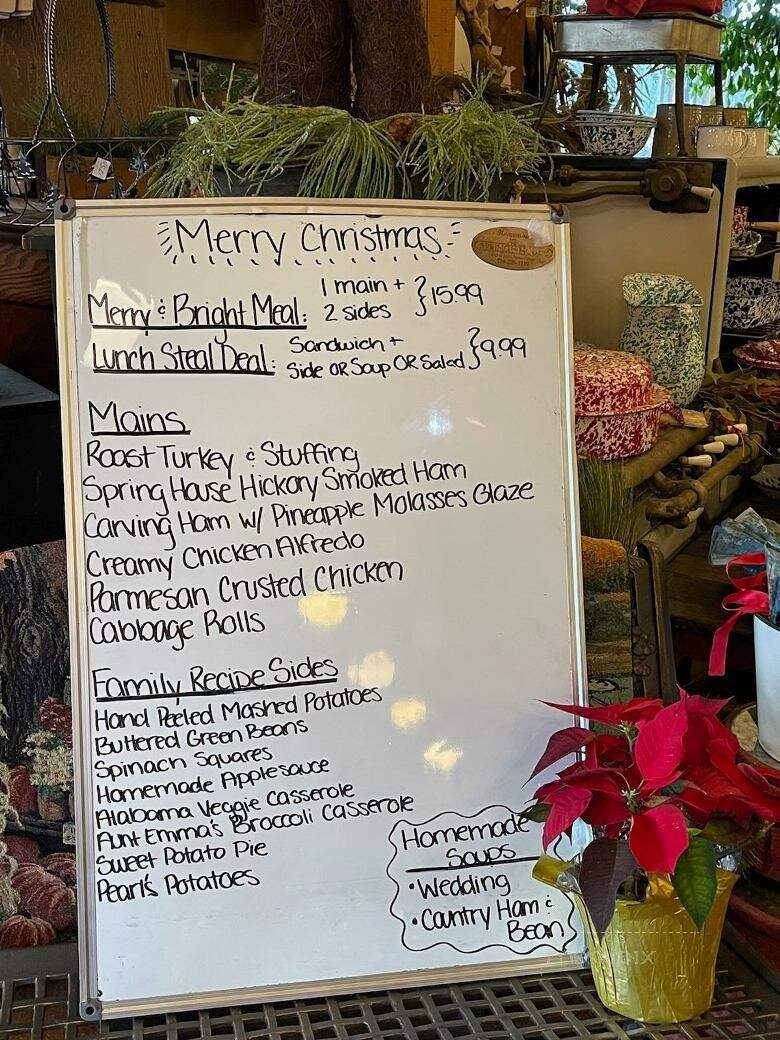 Merry Christmas
Merry & Bright Meal: 1 main + 2 sides } 15.99
Lunch Steal Deal: Sandwich + Side OR Soup OR Salad } 9.99
Mains
Roast Turkey & Stuffing
Spring House Hickory Smoked Ham
Carving Ham w/ Pineapple Molasses Glaze
Creamy Chicken Alfredo
Parmesan Crusted Chicken
Cabbage Rolls
Family Recipe Sides
Hand Peeled Mashed Potatoes
Buttered Green Beans
Spinach Squares
Homemade Applesauce
Alabama Veggie Casserole
Aunt Emma's Broccoli Casserole
Sweet Potato Pie
Pearl's Potatoes
Homemade
Soups
• Wedding
• Country Ham &
Bean